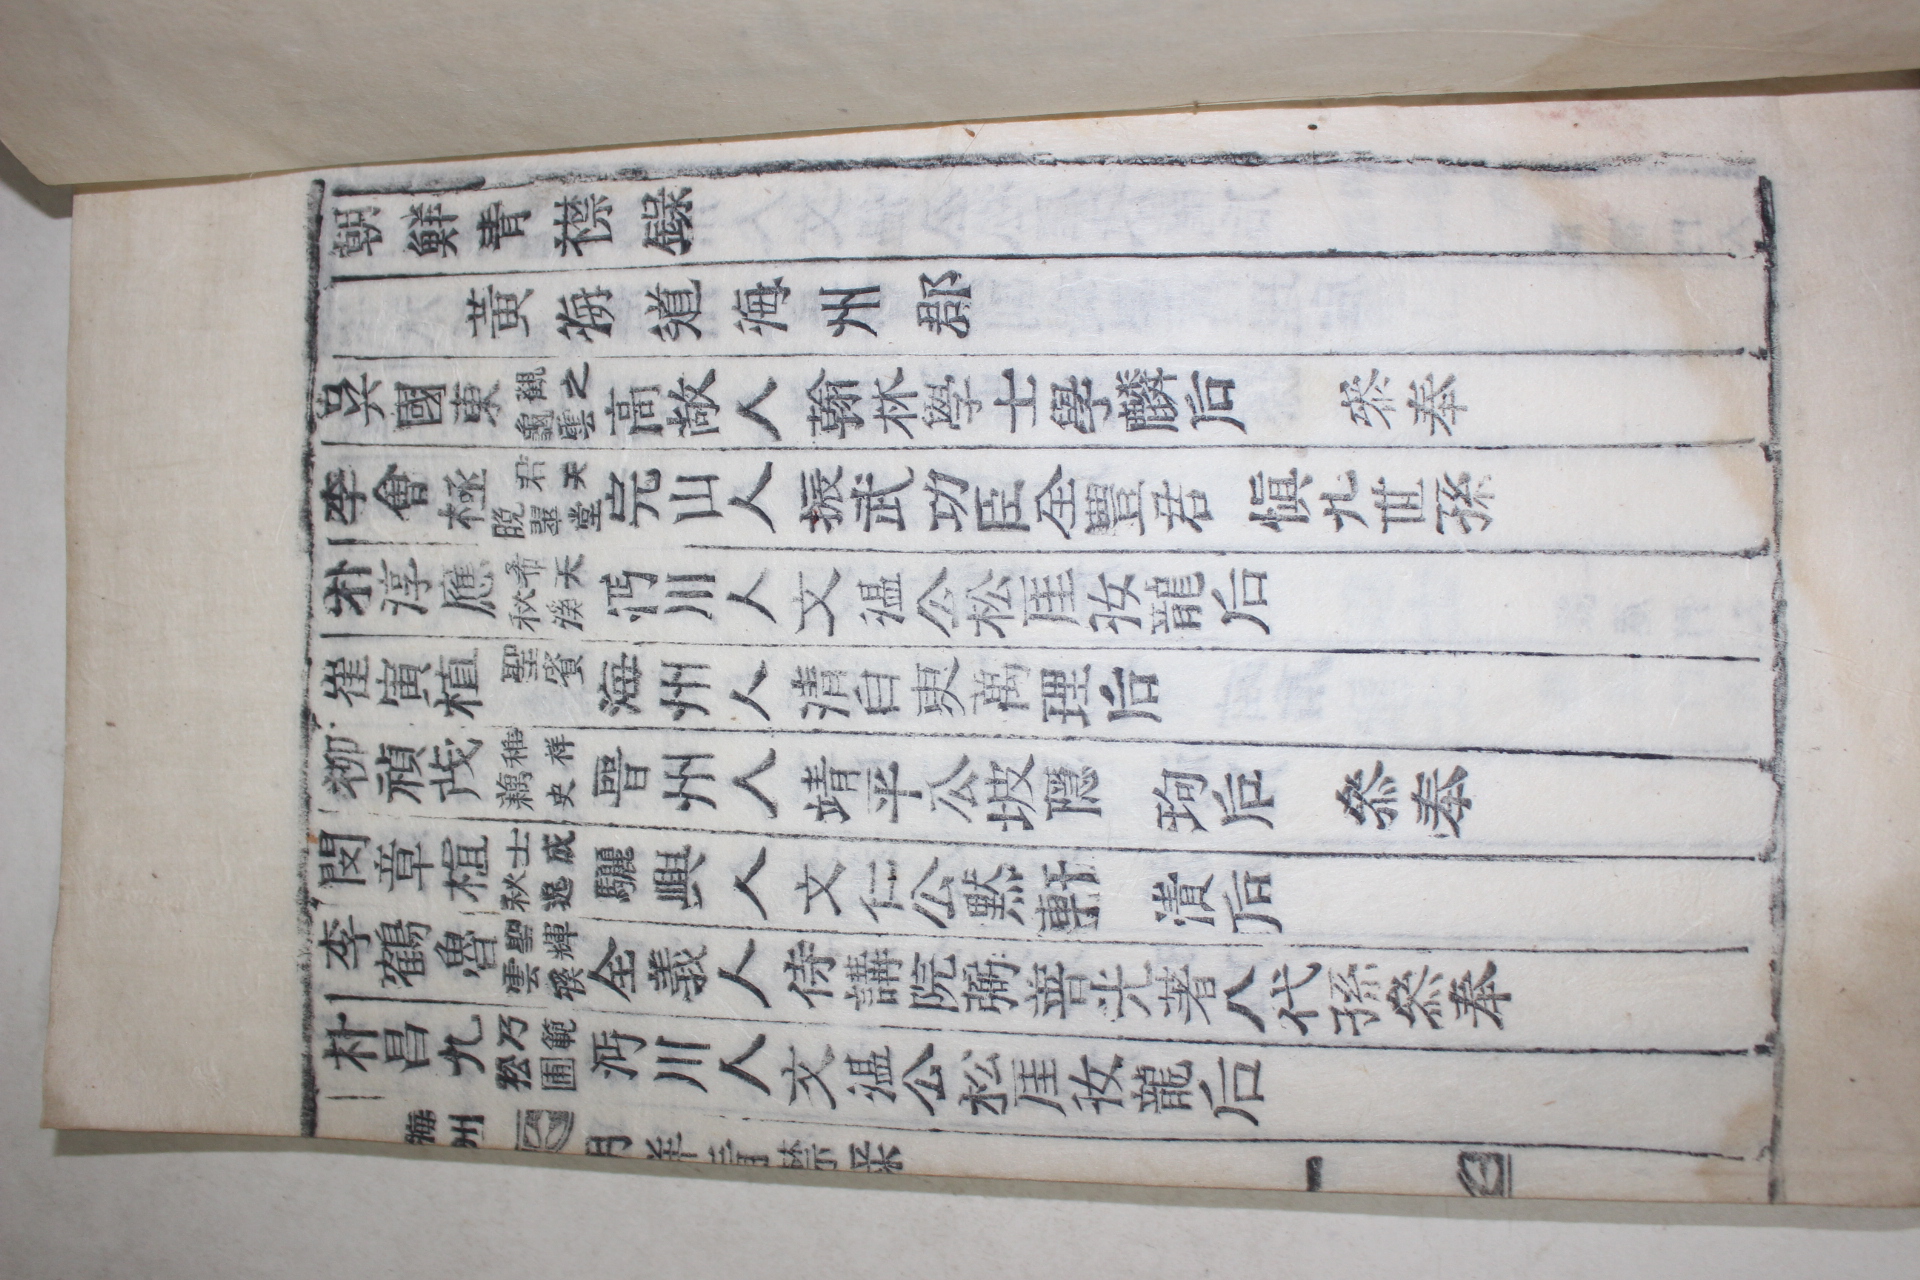 朝鮮青襟錄
黃海道海州郡
吳國東 觀之 龜雲 高敞人 翰林學士學麟后 參奉
李會極 君天 晩翠堂 完山人 振武功臣全豊君 愼九世孫
朴淳應 希天 秋溪 沔川人 文温公松厓汝龍后
崔寅植 聖賓 海州人 清白吏萬理后
柳禎茂 稚祥 藕史 晋州人 靖平公坡隱 珣后 參奉
閔章楫 士成 秋逸 驪興人 文仁公默軒 漬后
李鶴魯 聖輝 雲溪 全義人 侍講院弼善光著八代孫參奉
朴昌九 乃範 松圃 沔川人 文温公松厓汝龍后
海州 朝鮮青襟錄 一